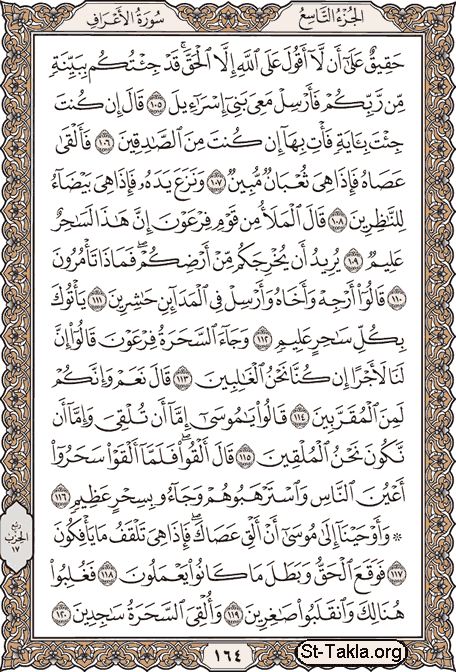 الجزء التاسع
سورة الأعراف
حَقِيقٌ عَلَىٰٓ أَن لَّآ أَقُولَ عَلَى ٱللَّهِ إِلَّا ٱلْحَقَّۚ قَدْ جِئْتُكُم بِبَيِّنَةٍ
مِّن رَّبِّكُمْ فَأَرْسِلْ مَعِىَ بَنِىٓ إِسْرَٰٓءِيلَ ١٠٥ قَالَ إِن كُنتَ
جِئْتَ بِـَٔايَةٍ فَأْتِ بِهَآ إِن كُنتَ مِنَ ٱلصَّٰدِقِينَ ١٠٦ فَأَلْقَىٰ
عَصَاهُ فَإِذَا هِىَ ثُعْبَانٌ مُّبِينٌ ١٠٧ وَنَزَعَ يَدَهُۥ فَإِذَا هِىَ بَيْضَآءُ
لِلنَّٰظِرِينَ ١٠٨ قَالَ ٱلْمَلَأُ مِن قَوْمِ فِرْعَوْنَ إِنَّ هَٰذَا لَسَٰحِرٌ
عَلِيمٌ ١٠٩ يُرِيدُ أَن يُخْرِجَكُم مِّنْ أَرْضِكُمْۖ فَمَاذَا تَأْمُرُونَ
١١٠ قَالُوٓا۟ أَرْجِهْ وَأَخَاهُ وَأَرْسِلْ فِى ٱلْمَدَآئِنِ حَٰشِرِينَ ١١١ يَأْتُوكَ
بِكُلِّ سَٰحِرٍ عَلِيمٍ ١١٢ وَجَآءَ ٱلسَّحَرَةُ فِرْعَوْنَ قَالُوٓا۟ إِنَّ
لَنَا لَأَجْرًا إِن كُنَّا نَحْنُ ٱلْغَٰلِبِينَ ١١٣ قَالَ نَعَمْ وَإِنَّكُمْ
لَمِنَ ٱلْمُقَرَّبِينَ ١١٤ قَالُوا۟ يَٰمُوسَىٰٓ إِمَّآ أَن تُلْقِىَ وَإِمَّآ أَن
نَّكُونَ نَحْنُ ٱلْمُلْقِينَ ١١٥ قَالَ أَلْقُوا۟ۖ فَلَمَّآ أَلْقَوْا۟ سَحَرُوٓا۟
أَعْيُنَ ٱلنَّاسِ وَٱسْتَرْهَبُوهُمْ وَجَآءُو بِسِحْرٍ عَظِيمٍ ١١٦
۞ وَأَوْحَيْنَآ إِلَىٰ مُوسَىٰٓ أَنْ أَلْقِ عَصَاكَۖ فَإِذَا هِىَ تَلْقَفُ مَا يَأْفِكُونَ
١١٧ فَوَقَعَ ٱلْحَقُّ وَبَطَلَ مَا كَانُوا۟ يَعْمَلُونَ ١١٨ فَغُلِبُوا۟
هُنَالِكَ وَٱنقَلَبُوا۟ صَٰغِرِينَ ١١٩ وَأُلْقِىَ ٱلسَّحَرَةُ سَٰجِدِينَ ١٢٠
ربع
الحزب
١٧
١٦٤
St-Takla.org